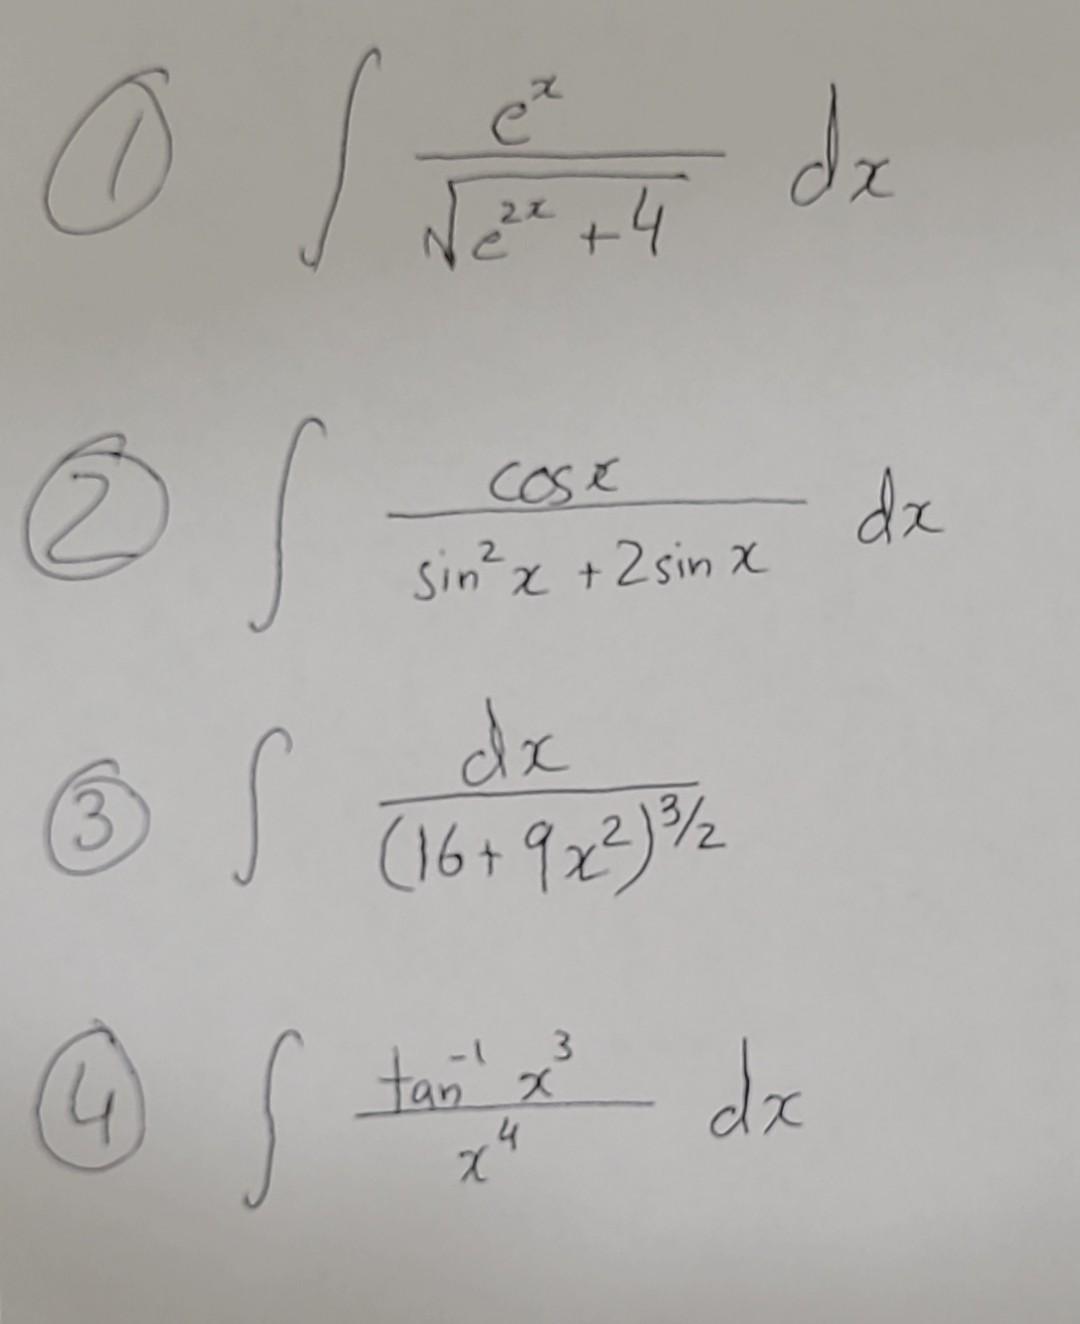 ① ∫ eˣ / √(e²ˣ + 4) dx
② ∫ cos x / (sin² x + 2 sin x) dx
③ ∫ dx / (16 + 9x²)^(3/2)
④ ∫ tan⁻¹ x³ / x⁴ dx